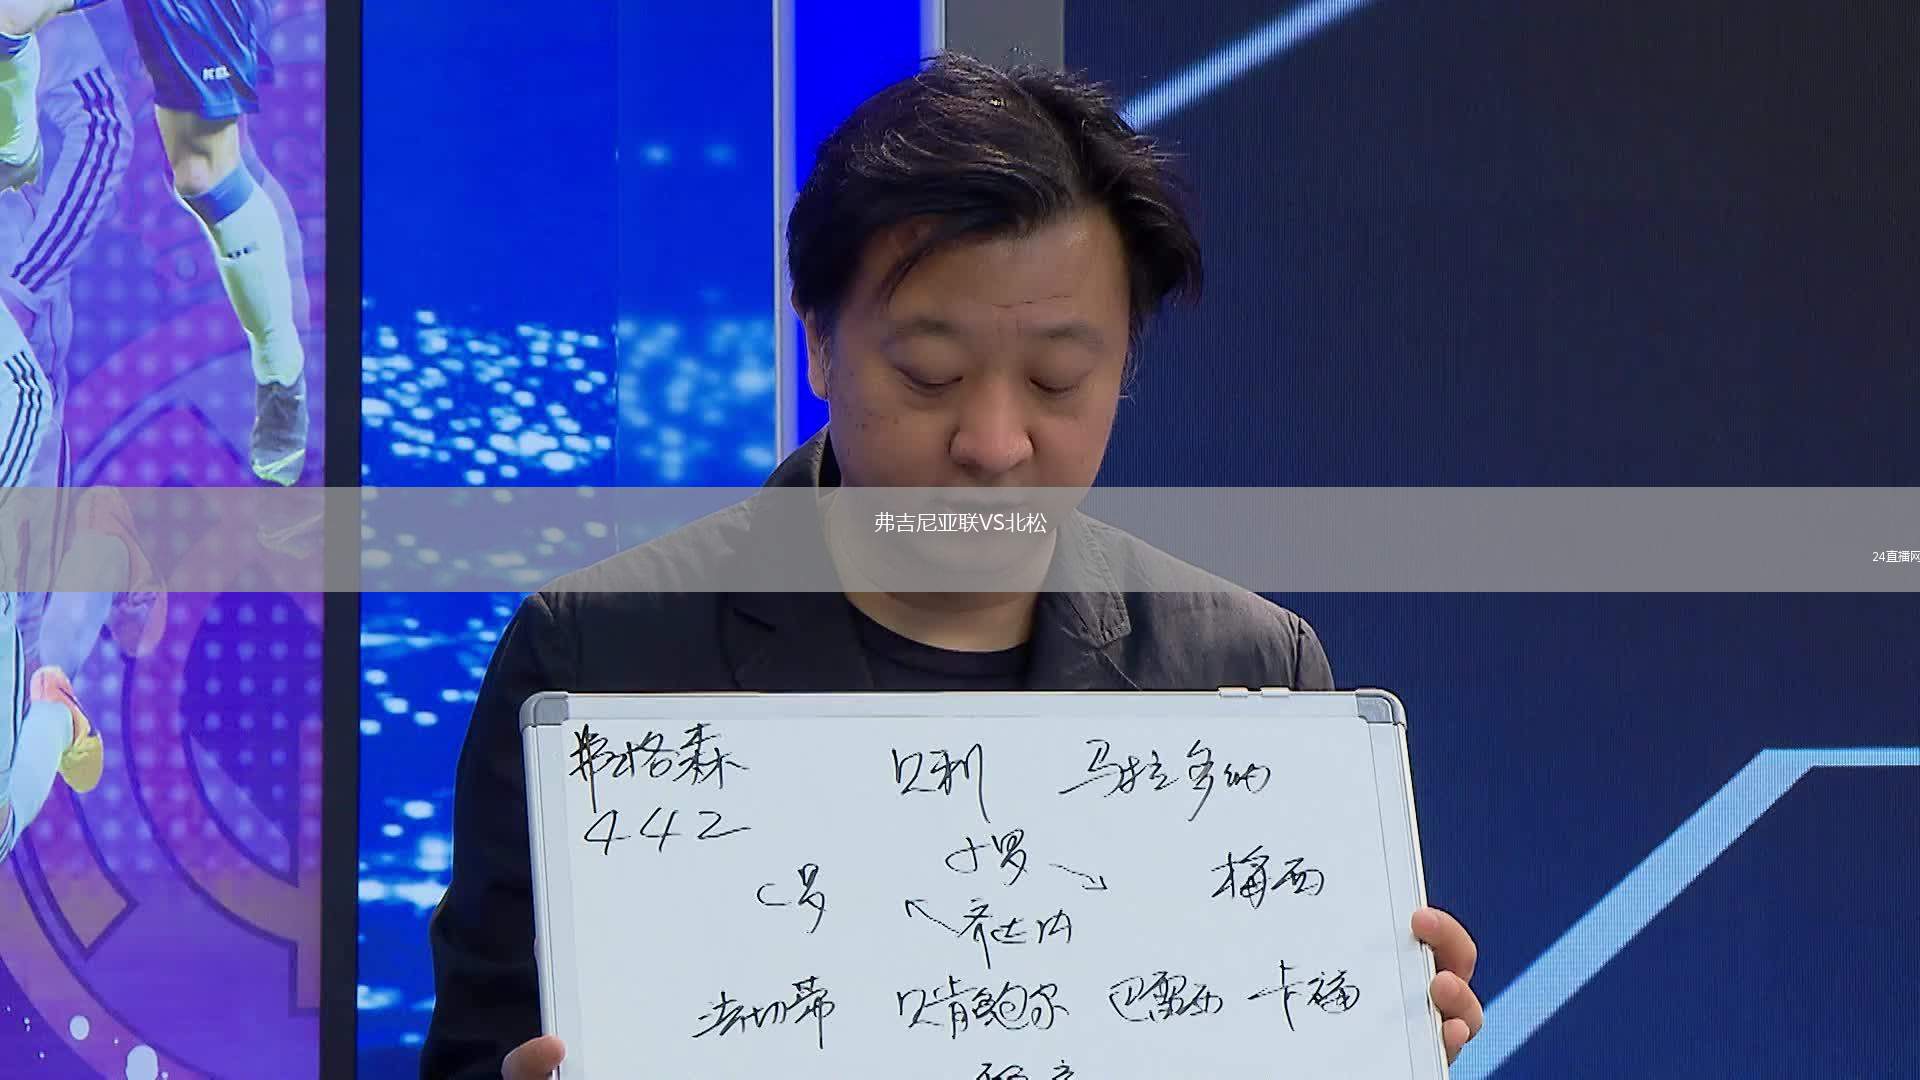 弗吉尼亚联VS北松
24直播网
弗格森
442
贝利 马拉多纳
小罗
C罗 梅西
齐达内
法切蒂 贝肯鲍尔 巴雷西 卡福